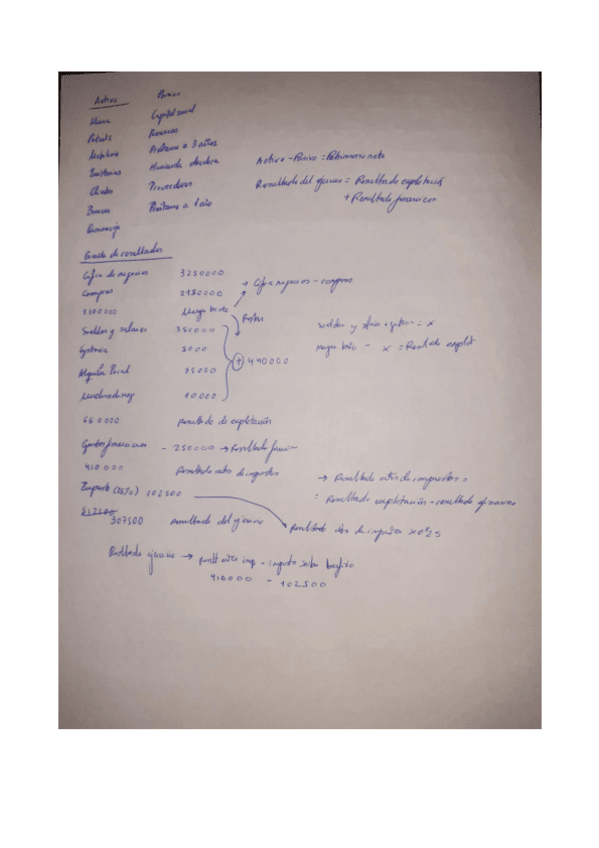 Activo Pasivo
Marca Capital social
Patents Reservas
Mobiliario Préstamo a 3 años
Existencias Hacienda deudora Activo - Pasivo = Patrimonio neto
Clientes Proveedores Resultado del ejercicio = Resultado explotació
Bancos Préstamo a 1 año + Resultado financiero
Cuenta de resultados
Cifra de negocios 3250000
Compras 2150000 → Cifra negocios - compras
1100000 Margen bruto Restar
Sueldos y salarios 350000 sueldos y = x
5000 Margen bruto - x = Resultado explot
Alquiler local 75000 + 440000
10000
660000 Resultado de explotación
Gastos financieros - 250000 → Resultado financiero
410000 Resultado antes de impuestos → Resultado antes de impuestos =
Impuesto (25%) 102500 = Resultado explotación - resultado financiero
307500 Resultado del ejercicio Resultado antes de impuestos x 0'25
Resultado ejercicio → result antes imp - impuesto sobre beneficio
410000 - 102500